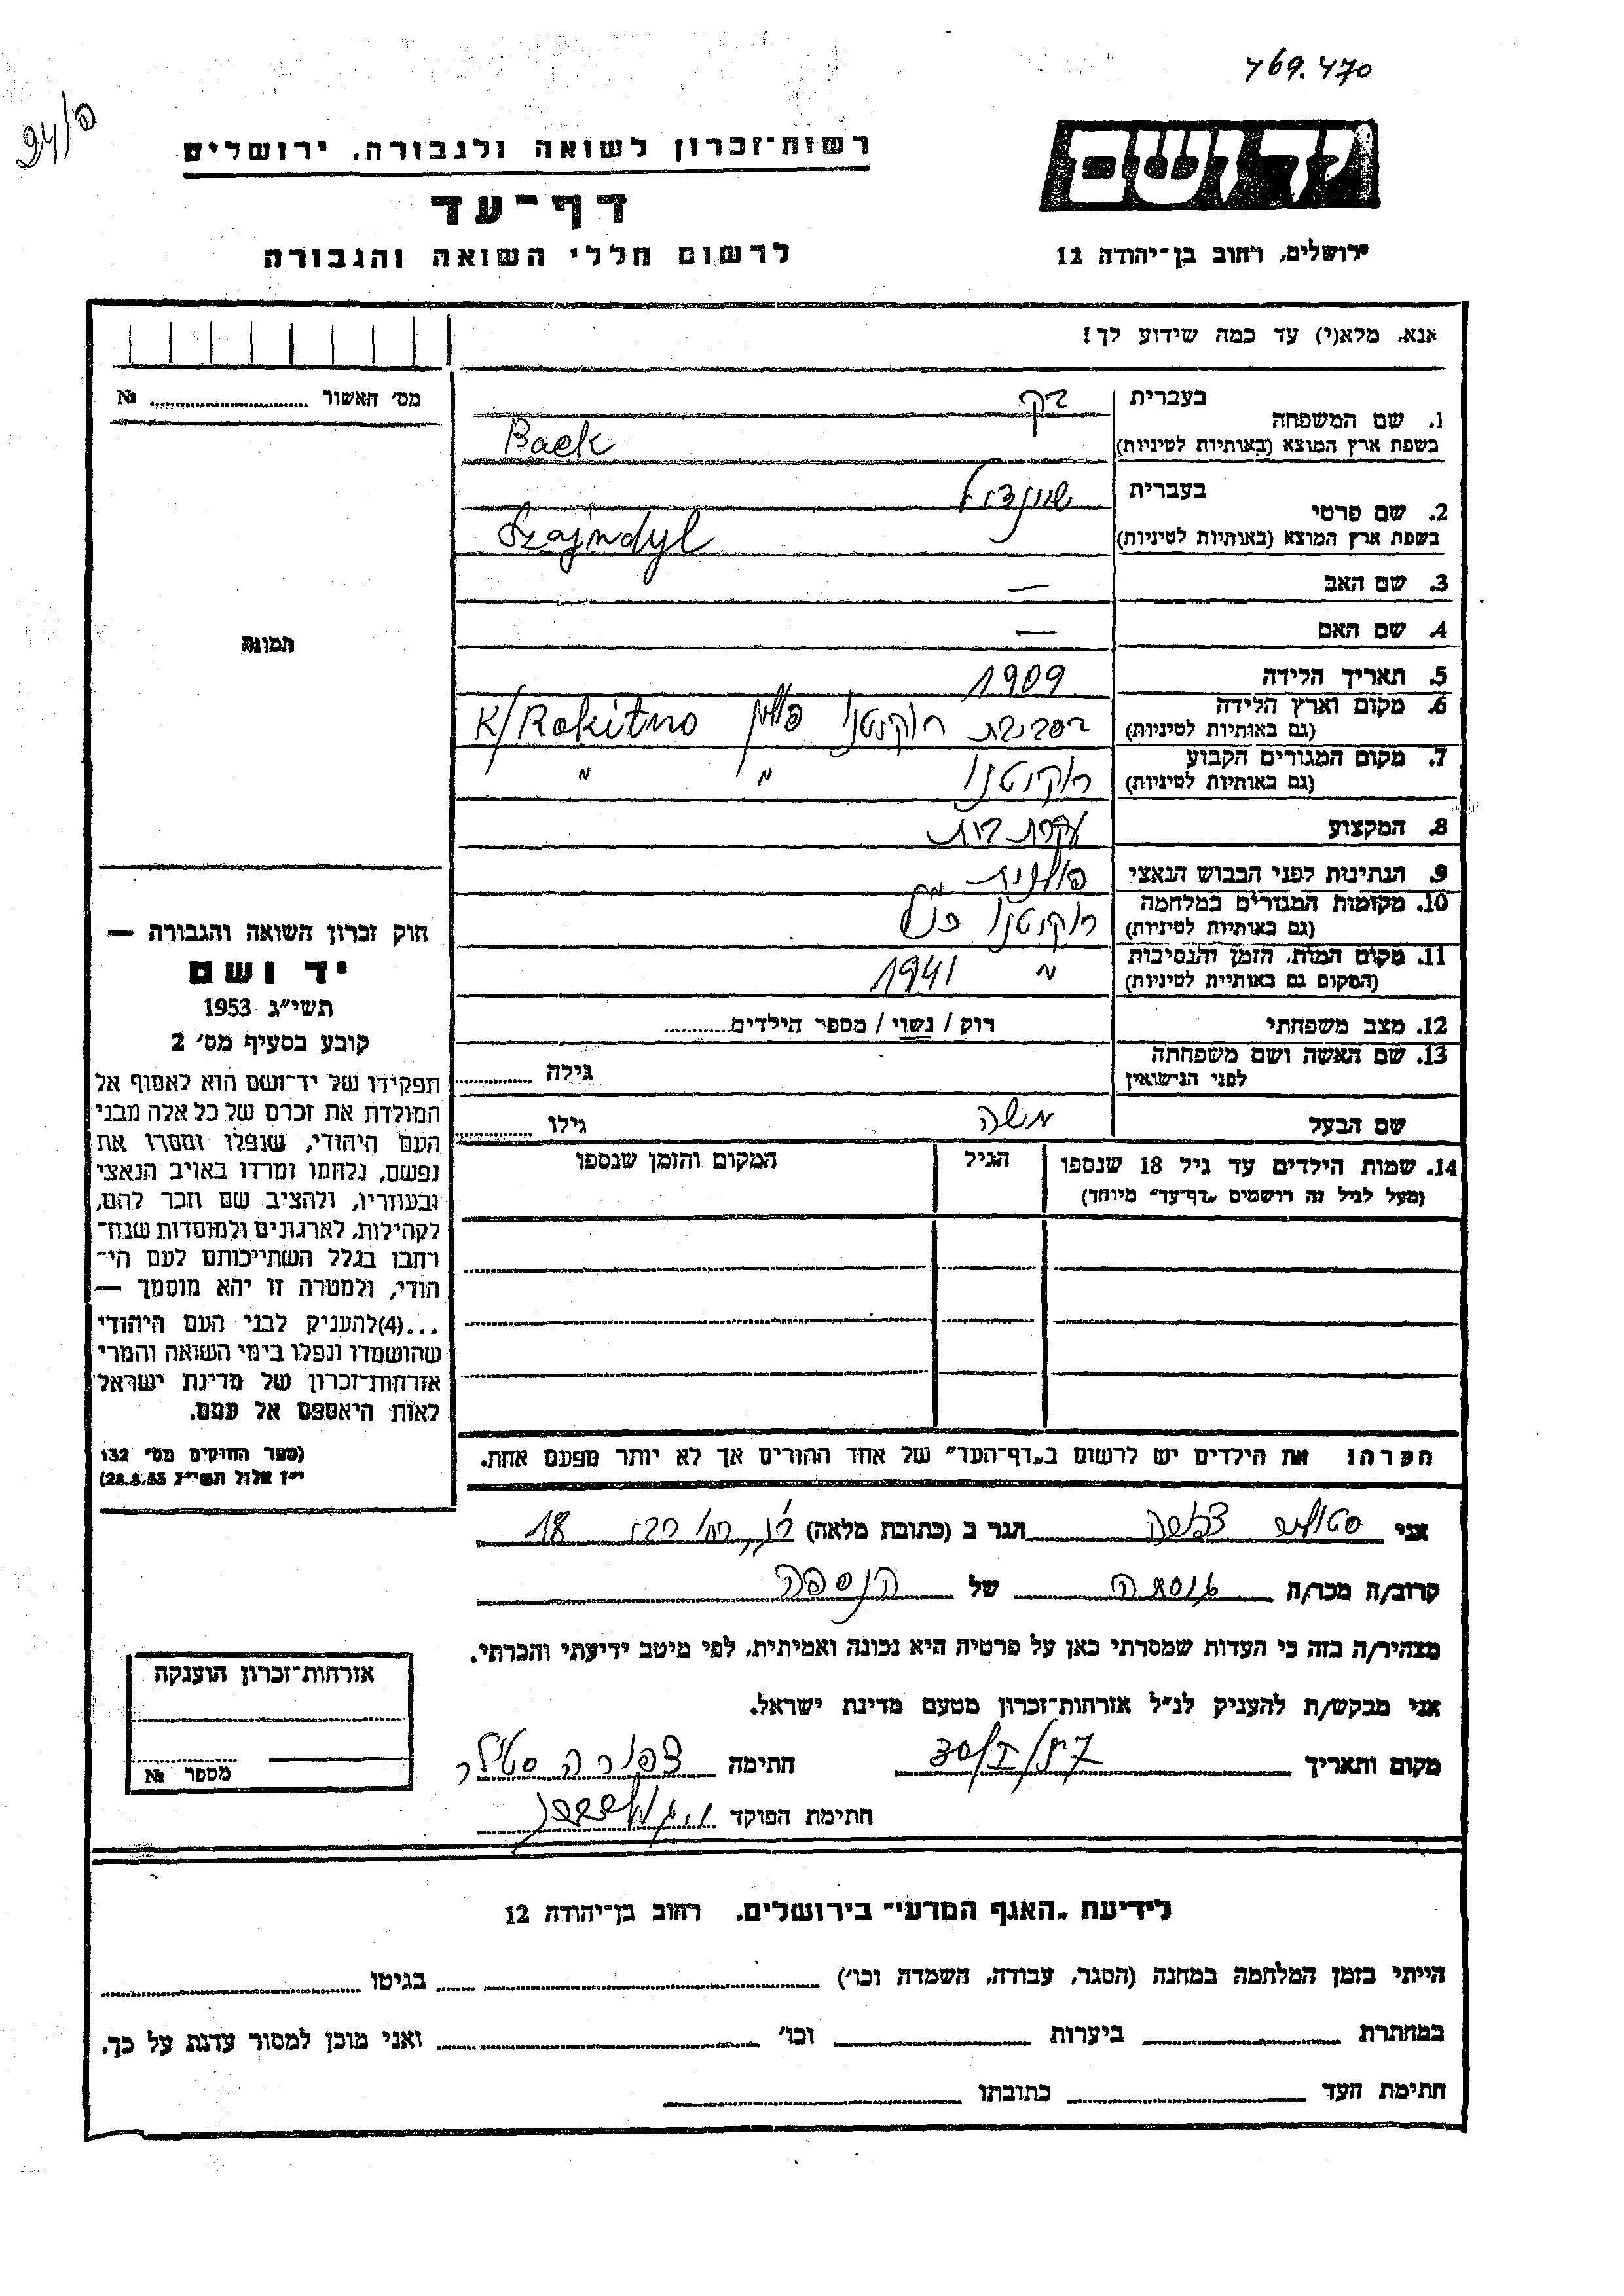 469.470
94/פ
יד ושם
ירושלים, רחוב בן־יהודה 12
רשות־זכרון לשואה ולגבורה, ירושלים
דף־עד
לרשום חללי השואה והגבורה
אנא, מלא(י) עד כמה שידוע לך!
מס׳ האשור № ............
1. שם המשפחה בעברית בק
בשפת ארץ המוצא (באותיות לטיניות) Baek
2. שם פרטי בעברית שיינדיל
בשפת ארץ המוצא (באותיות לטיניות) Szajndyl
3. שם האב —
4. שם האם —
5. תאריך הלידה 1909
6. מקום וארץ הלידה (גם באותיות לטיניות) בסביבת רוקיטנו פולין K/Rokitno
7. מקום המגורים הקבוע (גם באותיות לטיניות) רוקיטנו " "
8. המקצוע עקרת בית
9. הנתינות לפני הכבוש הנאצי פולנית
10. מקומות המגורים במלחמה (גם באותיות לטיניות) רוקיטנו כנ"ל
11. מקום המות, הזמן והנסיבות (המקום גם באותיית לטיניות) " 1941
12. מצב משפחתי רוק / נשוי / מספר הילדים............
13. שם האשה ושם משפחתה לפני הנישואין גילה ............
שם הבעל משה גילו ............
14. שמות הילדים עד גיל 18 שנספו הגיל המקום והזמן שנספו
(מעל לגיל זה רושמים „דף־עד״ מיוחד)
הערה: את הילדים יש לרשום ב„דף־העד״ של אחד ההורים אך לא יותר מפעם אחת.
תמונה
חוק זכרון השואה והגבורה —
יד ושם
תשי״ג 1953
קובע בסעיף מס׳ 2
תפקידו של יד־ושם הוא לאסוף אל
המולדת את זכרם של כל אלה מבני
העם היהודי, שנפלו ומסרו את
נפשם, נלחמו ומרדו באויב הנאצי
ובעוזריו, ולהציב שם וזכר להם,
לקהילות, לארגונים ולמוסדות שנח־
רבו בגלל השתייכותם לעם הי־
הודי, ולמטרה זו יהא מוסמך —
...(4)להעניק לבני העם היהודי
שהושמדו ונפלו בימי השואה והמרי
אזרחות־זכרון של מדינת ישראל
לאות היאספם אל עמם.
(ספר החוקים מס׳ 132
י״ז אלול תשי״ג 28.8.53)
אני צפורה הגר ב (כתובת מלאה) 18
קרוב/ה מכר/ה של הנספה
מצהיר/ה בזה כי העדות שמסרתי כאן על פרטיה היא נכונה ואמיתית, לפי מיטב ידיעתי והכרתי.
אני מבקש/ת להעניק לנ״ל אזרחות־זכרון מטעם מדינת ישראל.
מקום ותאריך חתימה צפורה סטולר
חתימת הפוקד
אזרחות־זכרון הוענקה
מספר №
לידיעת „האגף המדעי״ בירושלים, רחוב בן־יהודה 12
הייתי בזמן המלחמה במחנה (הסגר, עבודה, השמדה וכו׳) בגיטו
במחתרת ביערות וכו׳ ואני מוכן למסור עדות על כך.
חתימת העד כתובתו